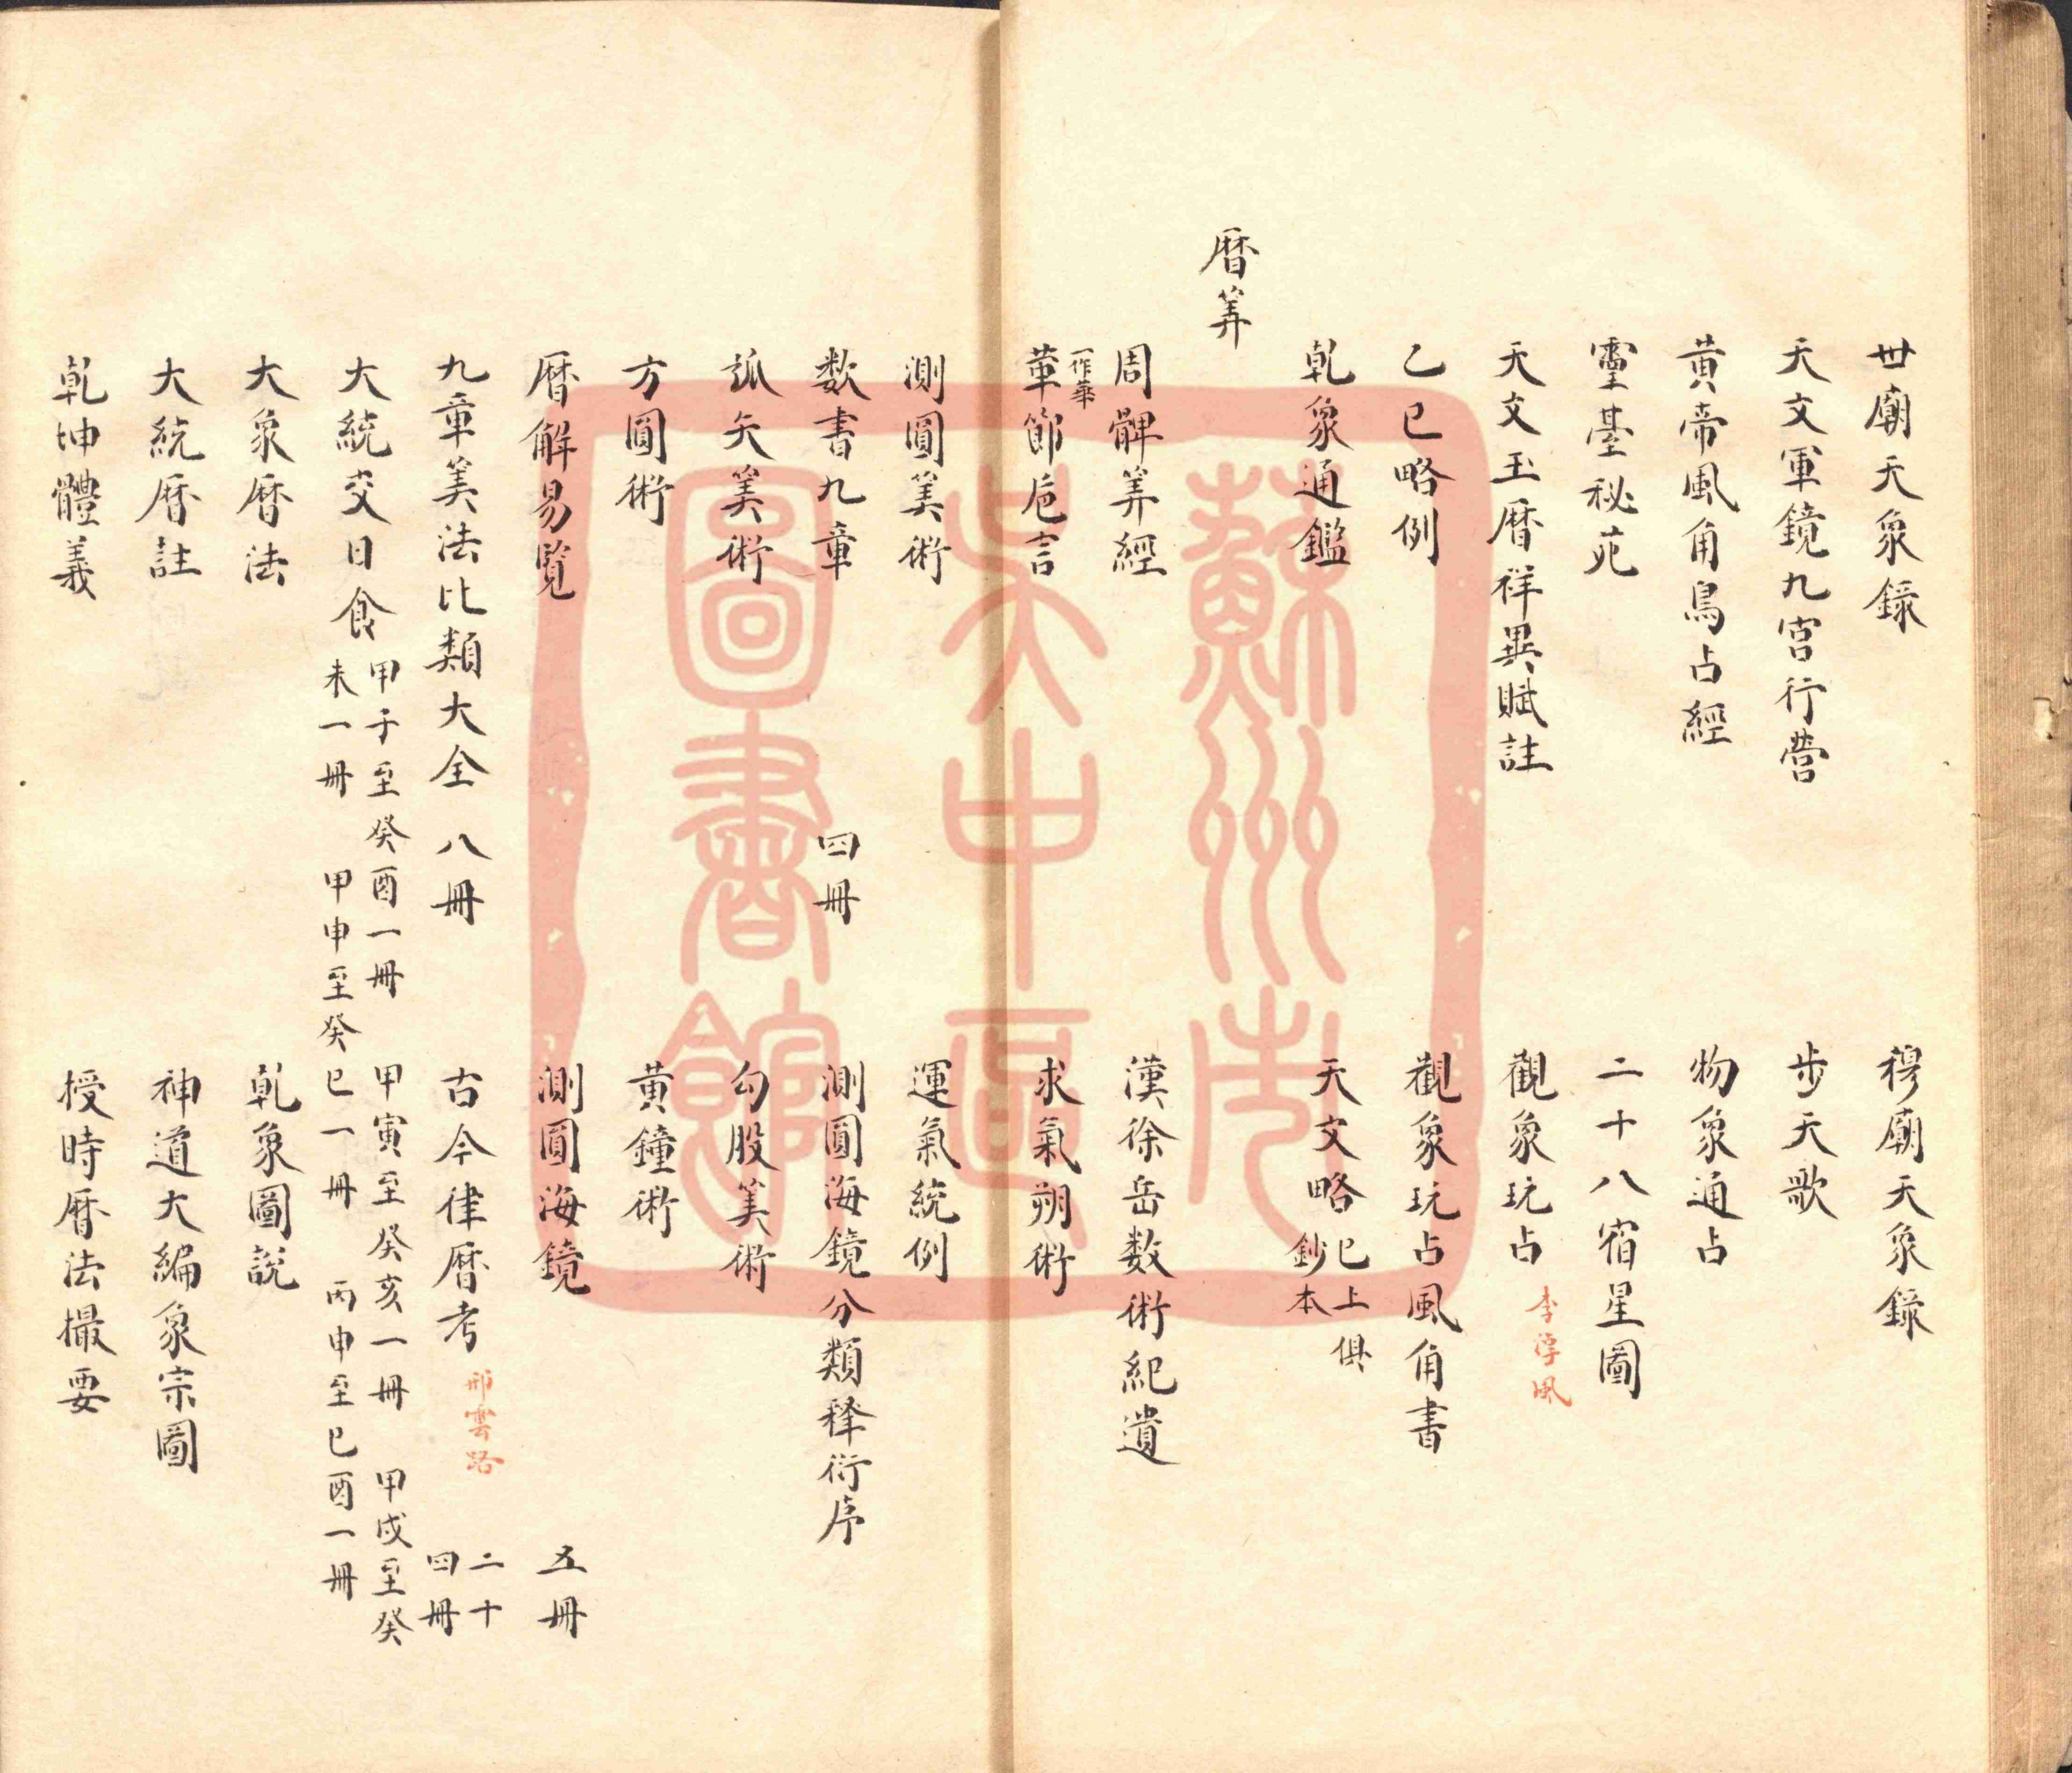 世廟天象録　穆廟天象録
天文軍鏡九宮行營　步天歌
黄帝風角鳥占經　物象通占
靈臺秘苑　二十八宿星圖
天文玉暦祥異賦註　觀象玩占　李淳風
乙巳略例　觀象玩占風角書
乾象通鑑　天文略　已上俱鈔本
暦筭
周髀筭經　漢徐岳数術紀遺
一作華
葷節卮言　求氣朔術
測圓筭術　運氣統例
数書九章　四冊　測圓海鏡分類釋術序
弧矢筭術　勾股筭術
方圓術　黄鐘術
暦解易覧　測圓海鏡　五冊
九章筭法比類大全　八冊　古今律暦考　邢雲路　二十四冊
大統交日食　甲子至癸酉一冊　甲寅至癸亥一冊　甲戌至癸
未一冊　甲申至癸巳一冊　丙申至己酉一冊
大象暦法　乾象圖説
大統暦註　神道大編象宗圖
乾坤體義　授時暦法撮要
蘇州市
吴中區
圖書館